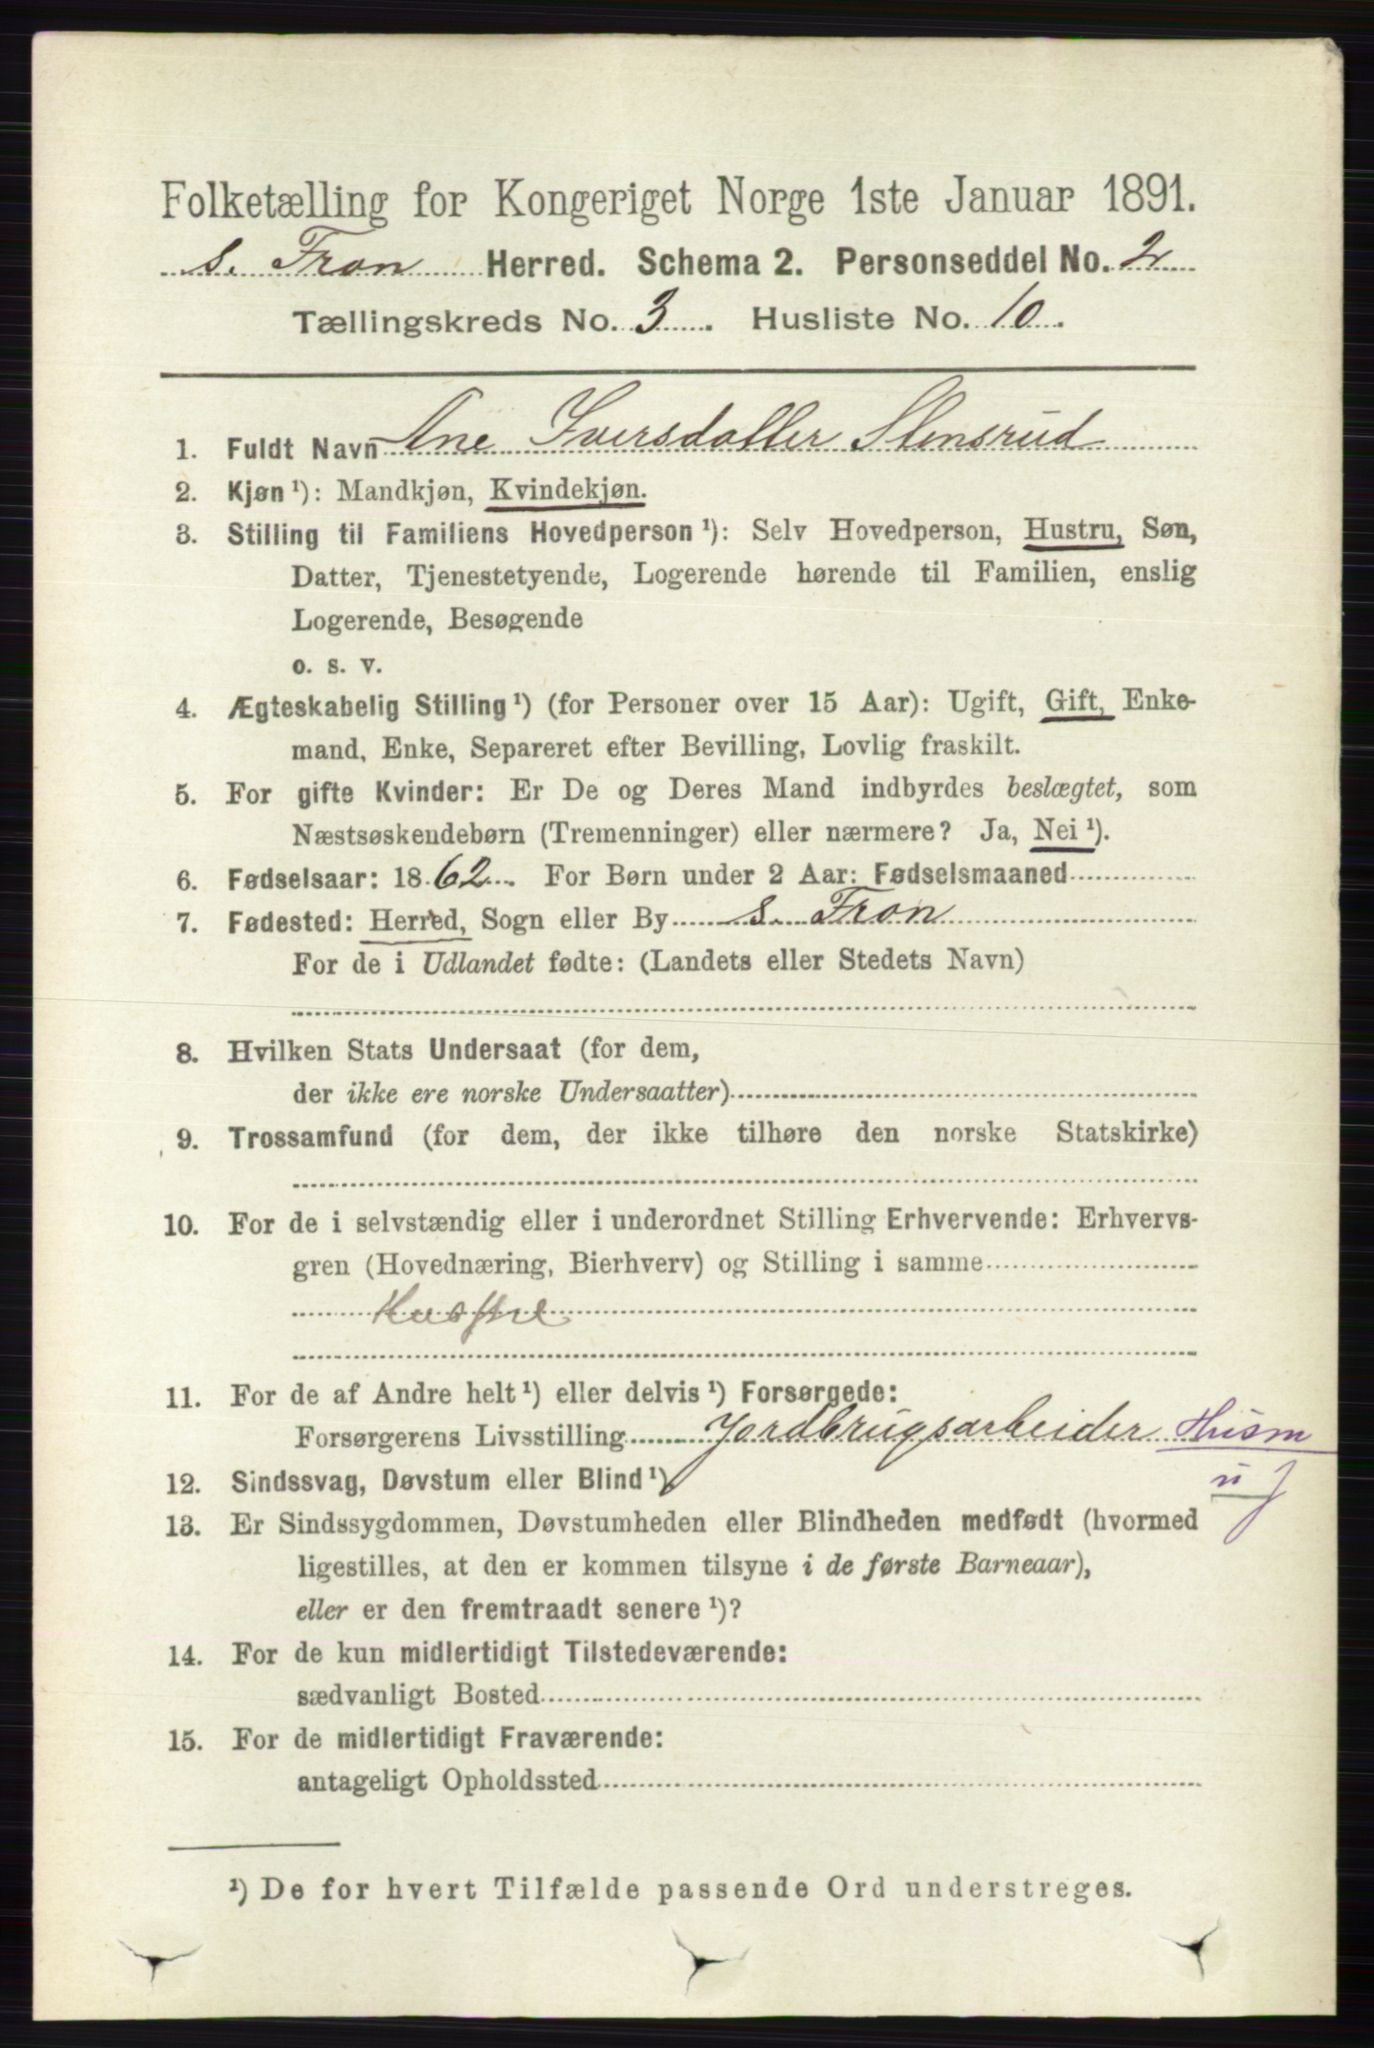 Folketælling for Kongeriget Norge 1ste Januar 1891.
s. Fron Herred. Schema 2. Personseddel No. 2
Tællingskreds No. 3. Husliste No. 10.
1. Fuldt Navn Ane Iversdatter Stensrud
2. Kjøn ¹): Mandkjøn, Kvindekjøn.
3. Stilling til Familiens Hovedperson ¹): Selv Hovedperson, Hustru, Søn,
Datter, Tjenestetyende, Logerende hørende til Familien, enslig
Logerende, Besøgende
o. s. v.
4. Ægteskabelig Stilling ¹) (for Personer over 15 Aar): Ugift, Gift, Enke-
mand, Enke, Separeret efter Bevilling, Lovlig fraskilt.
5. For gifte Kvinder: Er De og Deres Mand indbyrdes beslægtet, som
Næstsøskendebørn (Tremenninger) eller nærmere? Ja, Nei ¹).
6. Fødselsaar: 1862. For Børn under 2 Aar: Fødselsmaaned
7. Fødested: Herred, Sogn eller By s. Fron
For de i Udlandet fødte: (Landets eller Stedets Navn)
8. Hvilken Stats Undersaat (for dem,
der ikke ere norske Undersaatter)
9. Trossamfund (for dem, der ikke tilhøre den norske Statskirke)
10. For de i selvstændig eller i underordnet Stilling Erhvervende: Erhvervs-
gren (Hovednæring, Bierhverv) og Stilling i samme
Husstel
11. For de af Andre helt ¹) eller delvis ¹) Forsørgede:
Forsørgerens Livsstilling Jordbrugsarbeider Husm
12. Sindssvag, Døvstum eller Blind ¹) u J
13. Er Sindssygdommen, Døvstumheden eller Blindheden medfødt (hvormed
ligestilles, at den er kommen tilsyne i de første Barneaar),
eller er den fremtraadt senere ¹)?
14. For de kun midlertidigt Tilstedeværende:
sædvanligt Bosted
15. For de midlertidigt Fraværende:
antageligt Opholdssted
¹) De for hvert Tilfælde passende Ord understreges.